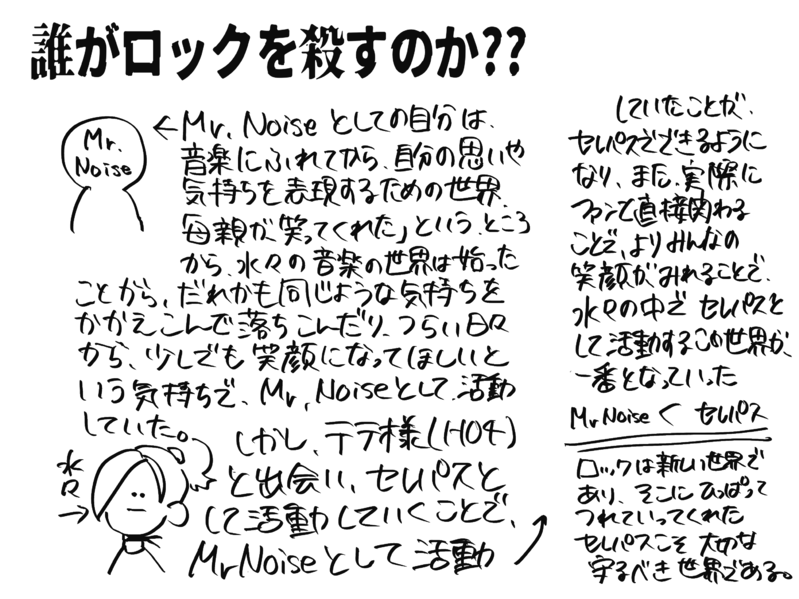 誰がロックを殺すのか??
Mr.
Noise
←Mr. Noise としての自分は、
音楽にふれてから、自分の思いや
気持ちを表現するための世界。
「母親が笑ってくれた」という ところ
から、水々の音楽の世界は始った
ことから、だれかも同じような気持ちを
かかえこんで落ちこんだり、つらい日々
から、少しでも笑顔になってほしいと
いう気持ちで、Mr. Noiseとして活動
していた。
水々→
しかし、テテ様(H04)
と出会い、セレパスと
して活動していくことで、
Mr Noiseとして活動
していたことが、
セレパスでできるように
なり、また、実際に
ファンと直接関わる
ことで、よりみんなの
笑顔がみれることで、
水々の中で セレパスと
して活動するこの世界が、
一番となっていった
Mr Noise < セレパス
ロックは新しい世界で
あり、そこに ひっぱって
つれていってくれた
セレパスこそ 大切な
守るべき世界である。